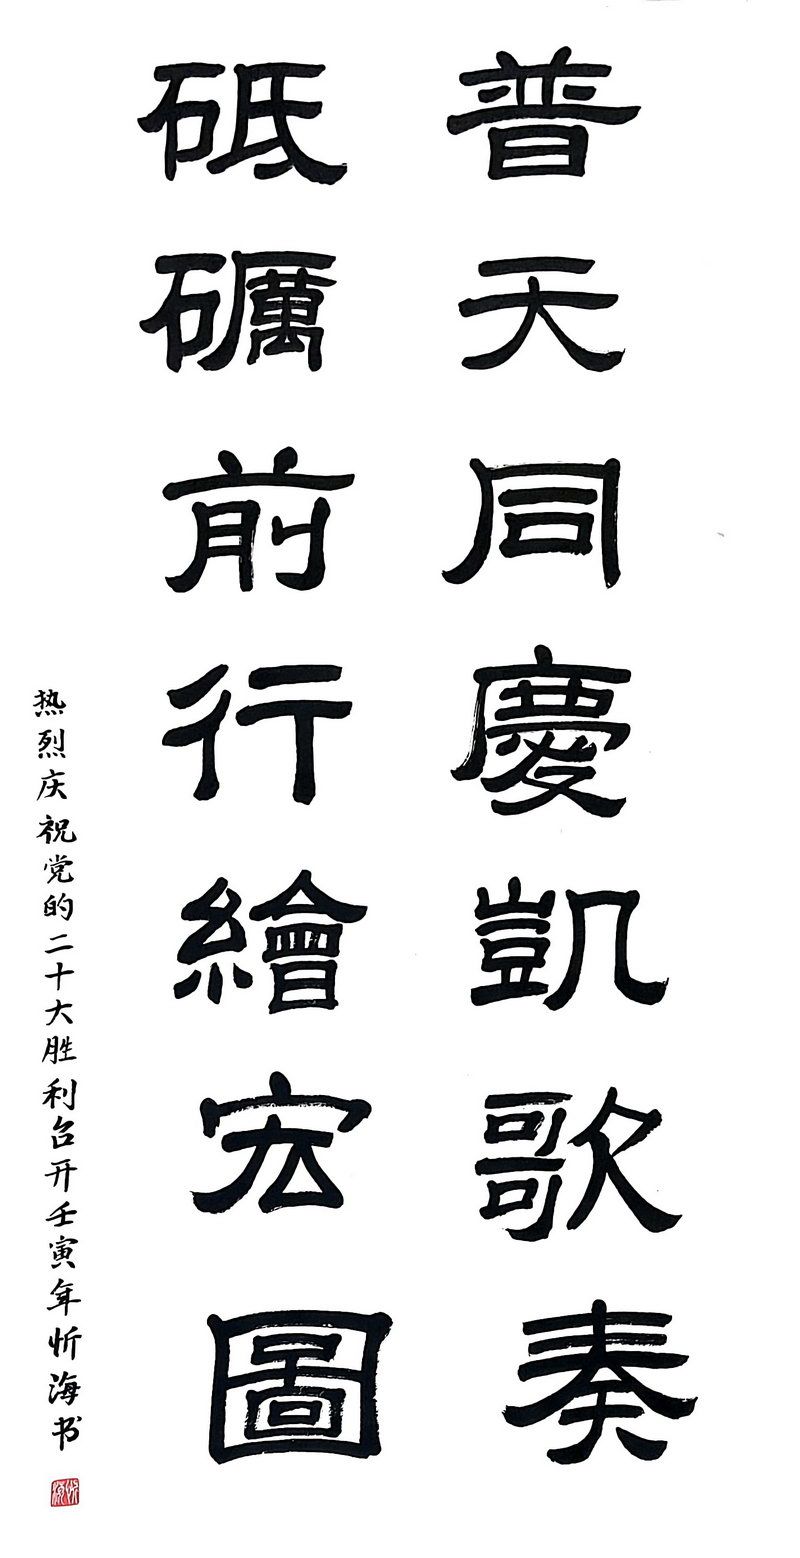 普天同慶凱歌奏
砥礪前行繪宏圖
热烈庆祝党的二十大胜利召开壬寅年忻海书